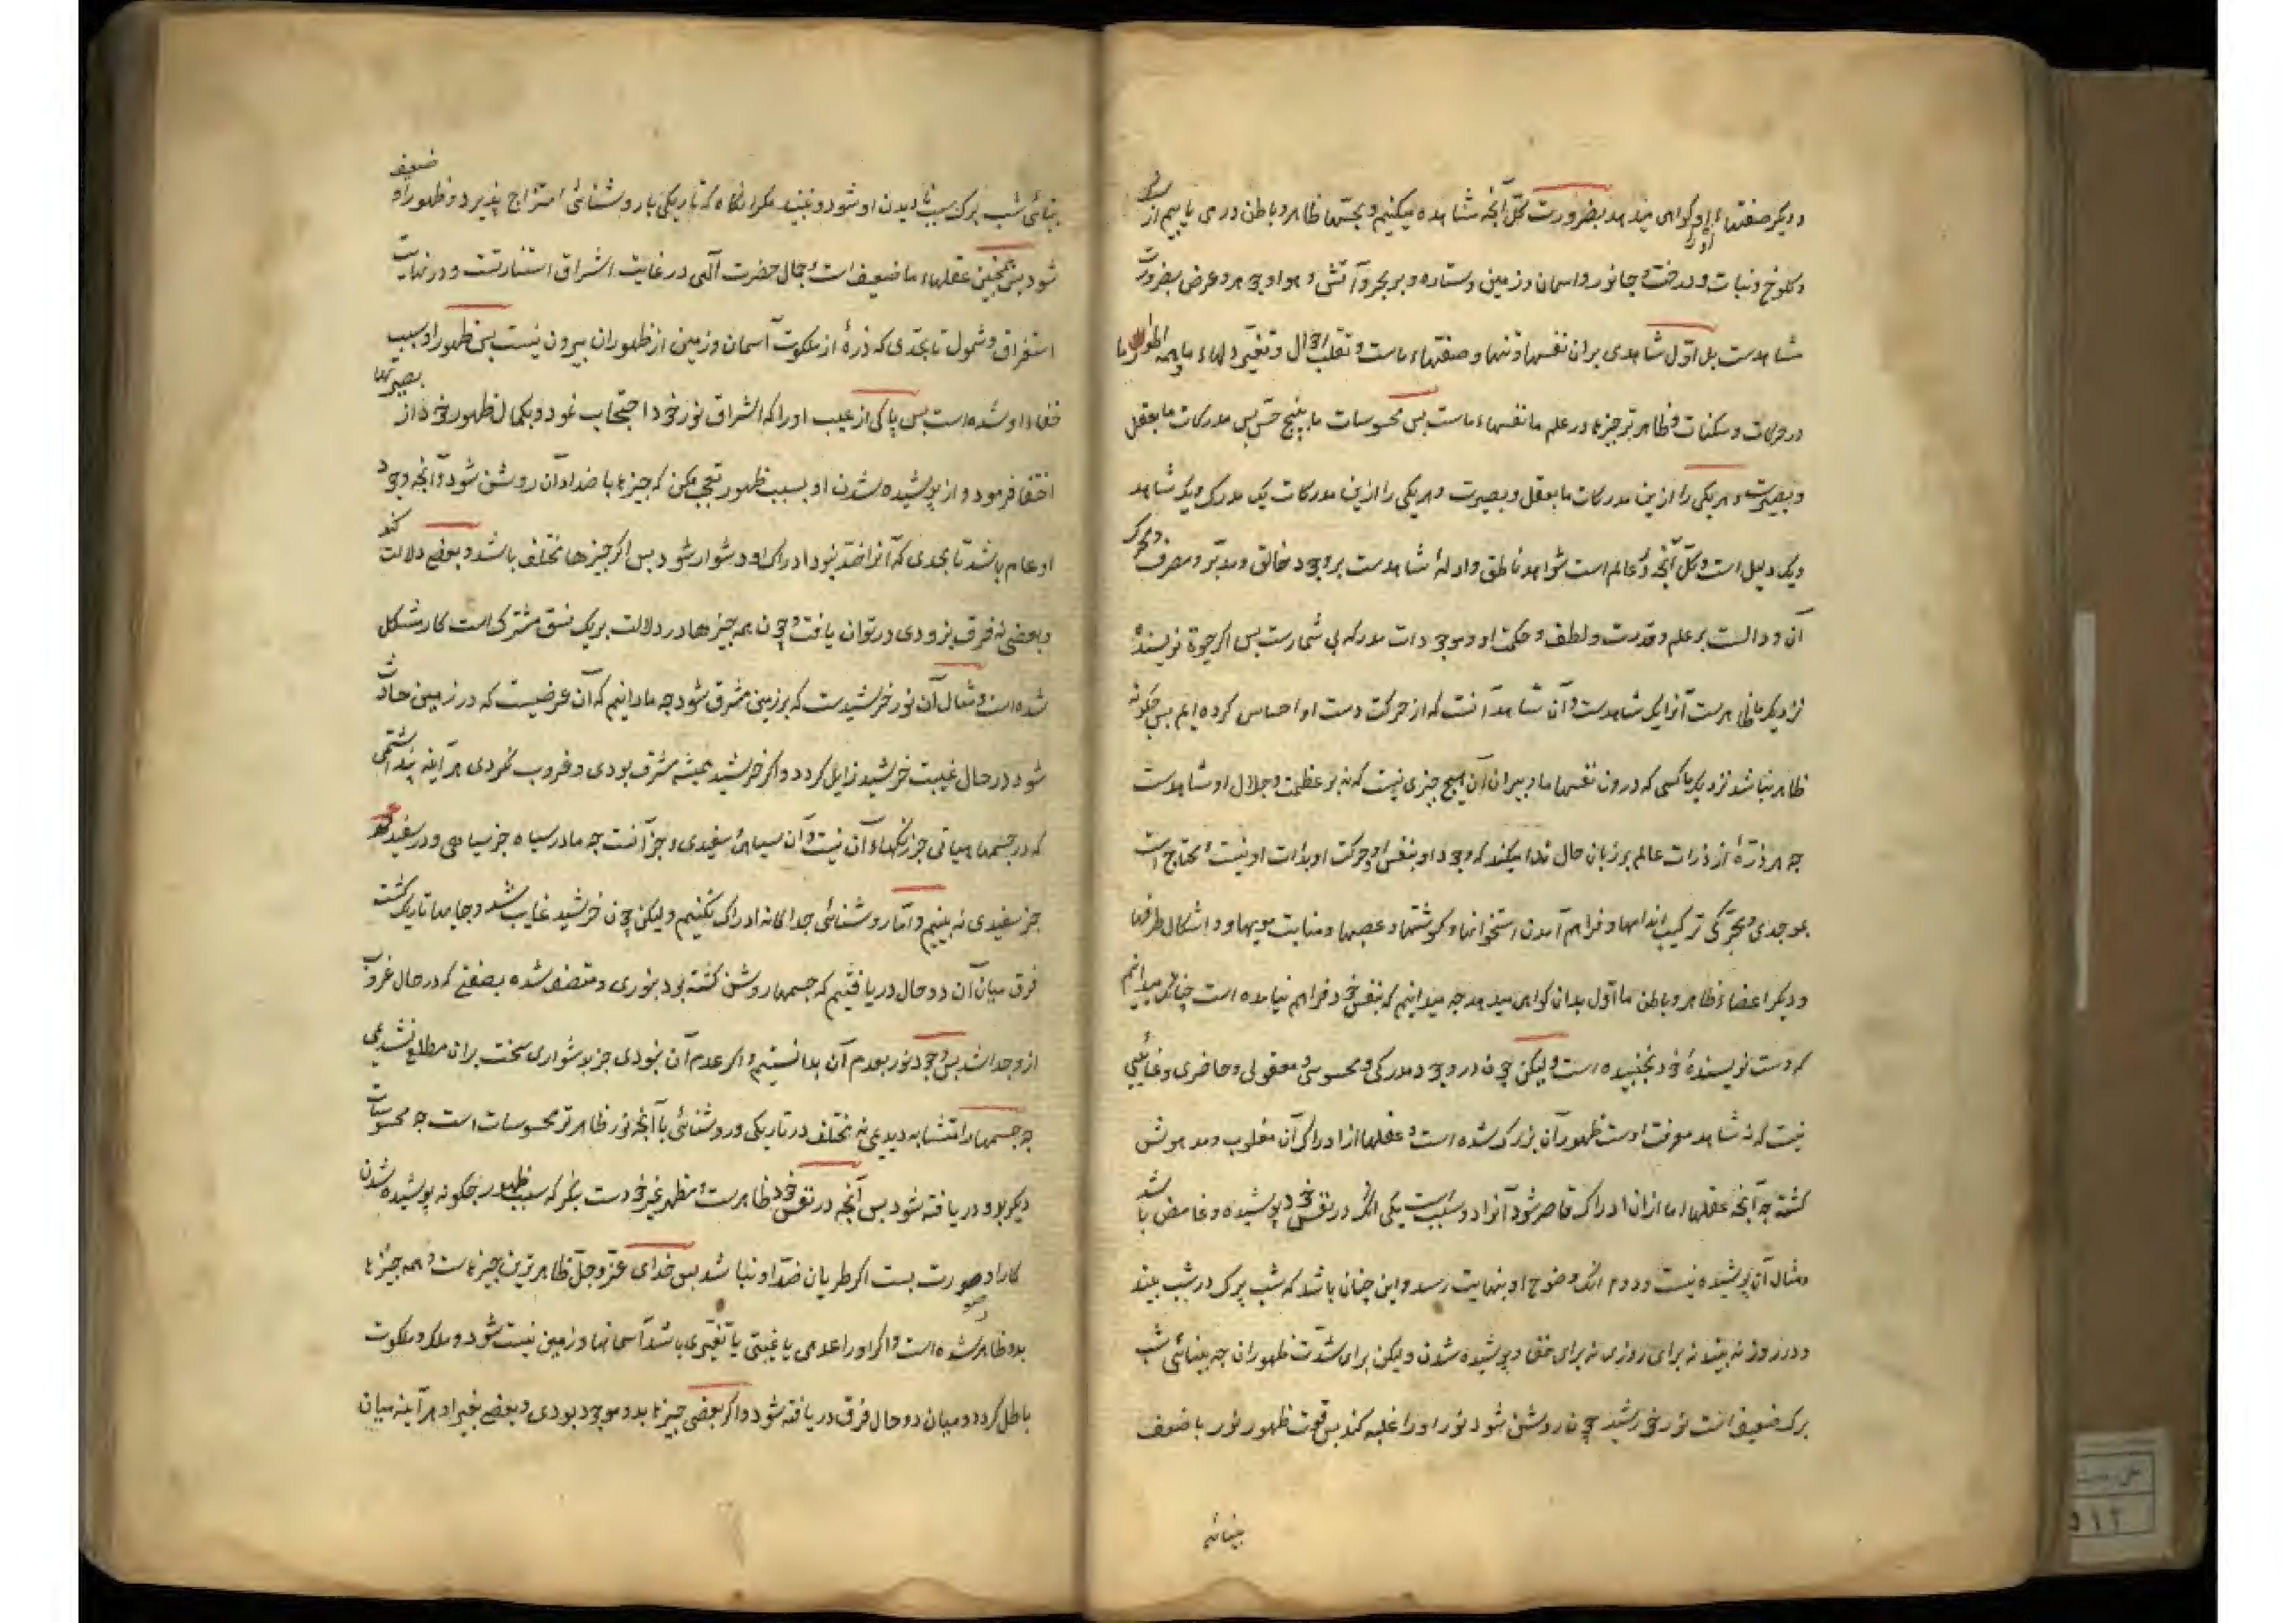 و دیگر صفتهاء او گواهی میدهد بضرورت کل آنچه مشاهده میکنیم و بحسّها ظاهر و باطن در می یابیم از سنگ
و کلوخ و نبات و درخت و جانور و اسمان و زمین و ستاره و بر و بحر و آتش و هوا و جوهر و عرض بضرورت
شاهدست بل اوّل شاهدی بران نفسها و تنها و صفتهاء ماست و تقلب احوال و تغیّر دلهاء ما و همه اطوار ما
در حرکات و سکنات و ظاهرتر چیزها در علم ما نفسهاء ماست بس محسوسات ما به پنج حس بس مدرکات ما بعقل
و بصیرت و هر یکی را ازین مدرکات ما بعقل و بصیرت و هر یکی را ازین مدرکات یک مدرک و یک شاهد
و یک دلیل است و کل آنچه در عالم است شواهد ناطق و ادلهٔ شاهدست بر وجود خالق و مدبّر و مصرف و محرک
آن و دالست بر علم و قدرت و لطف و حکمت او و موجودات مدرکه بی شمارست بس اکر حیوة نویسنده
نزدیک ما ظاهرست آنرا یک شاهدست و آن شاهد آنست که از حرکت دست او احساس کرده ایم بس چکونه
ظاهر نباشد نزدیک ما کسی که درون نفسها ما و بیران آن هیچ چیزی نیست که نه بر عظمت و جلال او شاهدست
چه هر ذرّهٔ از ذرات عالم بر زبان حال ندا میکند که وجود او بنفس او و حرکت او بذات او نیست و محتاج است
بموجدی و محرّکی ترکیب اندامها و فراهم آمدن استخوانها و کوشتها و عصبها و منابت مویها و اشکال طرفها
و دیگر اعضاء ظاهر و باطن ما اوّل بدان کواهی میدهد چه میدانیم که بنفس خود فراهم نیامده است چنانکه میدانیم
که دست نویسندهٔ خود نجنبیده است ولیکن چون در وجود مدرکی و محسوسی و معقولی و حاضری و غایبی
نیست که نه شاهد معرفت اوست ظهور آن بزرک شده است و عقلها از ادراک آن مغلوب و مدهوش
کشته چه آنچه عقلهاء ما از ان ادراک قاصر شود آنرا دو سبب است یکی انک در نفس خود پوشیده و غامض باشد
و مثال آن پوشیده نیست و دوم انک وضوح او بنهایت رسد و این چنان باشد که شب پرک در شب بیند
و در روز نه بیند نه برای روزی نه برای خفی و پوشیده شدن ولیکن برای شدّت ظهور ان چه بینائی شب
پرک ضعیف است نور خورشید چون روشن شود نور او را غلبه کند بس قوت ظهور نور با ضعف
بینائی
بینائی شب پرک سبب نادیدن او شود و نبیند مکر انکاه که تاریکی با روشنائی امتزاج پذیرد و ظهور آن ضعیف
شود بس همچنین عقلهاء ما ضعیف است و جمال حضرت آلهی در غایت اشراق استنارتست و در نهایت
استغراق و شمول تا بحدی که ذرهٔ از ملکوت آسمان و زمین از ظهور ان بیرون نیست بس ظهور او سبب
خفاء او شده است بس پاکی از عیب او را که باشراق نور خود احتجاب نمود و بکمال ظهور خود از بصیرتها
اختفا فرمود و از پوشیده شدن او بسبب ظهور تعجب مکن که چیزها باضداد آن روشن شود و آنچه وجود
او عام باشد تا بحدی که آنرا ضد نبود ادراک او دشوار شود بس اکر چیزها مختلف باشد و بعضی دلالت کند
و بعضی نه فرق بزودی در توان یافت و چون همه چیزها در دلالت بر یک نسق مشترک است کار مشکل
شده است و مثال آن نور خرشیدست که بر زمین مشرق شود چه ما دانیم که آن عرضیست که در زمین حادث
شود و در حال غیبت خرشید زایل کردد و اکر خرشید همیشه مشرق بودی و غروب نکردی هر آینه پنداشتمی
که در جسمها هیاتی جز رنکهاء آن نیست و آن سیاهی و سفیدی و جز آنست چه ما در سیاه جز سیاهی و در سفید
جز سفیدی نه بینیم و امّا روشنائی جداکانه ادراک نکنیم ولیکن چون خرشید غایب شد و جایها تاریک کشت
فرق میان آن دو حال دریافتیم که جسمها روشن کشته بود بنوری و متصف شده بصفتی که در حال غروب
ازو جدا شد بس وجود نور بعدم آن بدانستیم و اکر عدم آن نبودی جز بدشواری سخت بران مطلع نشدیمی
چه جسمها را متشابه دیدیمی نه مختلف در تاریکی و روشنائی با آنچه نور ظاهرتر محسوسات است چه محسوسات
دیکر بدو دریافته شود بس آنچه در نفس خود ظاهرست و مظهر غیر خودست بنکر که بسبب ظهور چکونه پوشیده شدن
کار او صورت بست اکر طریان ضدّ او نباشد بس خدای عزّ و جلّ ظاهرترین چیزهاست و همه چیزها
بدو ظاهر شده است و اکر او را عدمی یا غیبتی یا تغیّری باشد آسمانها و زمین نیست شود و ملک و ملکوت
باطل کردد و میان دو حال فرق دریافته شود و اکر بعضی چیزها بدو موجود بودی و بعضی بغیر او هر آینه میان